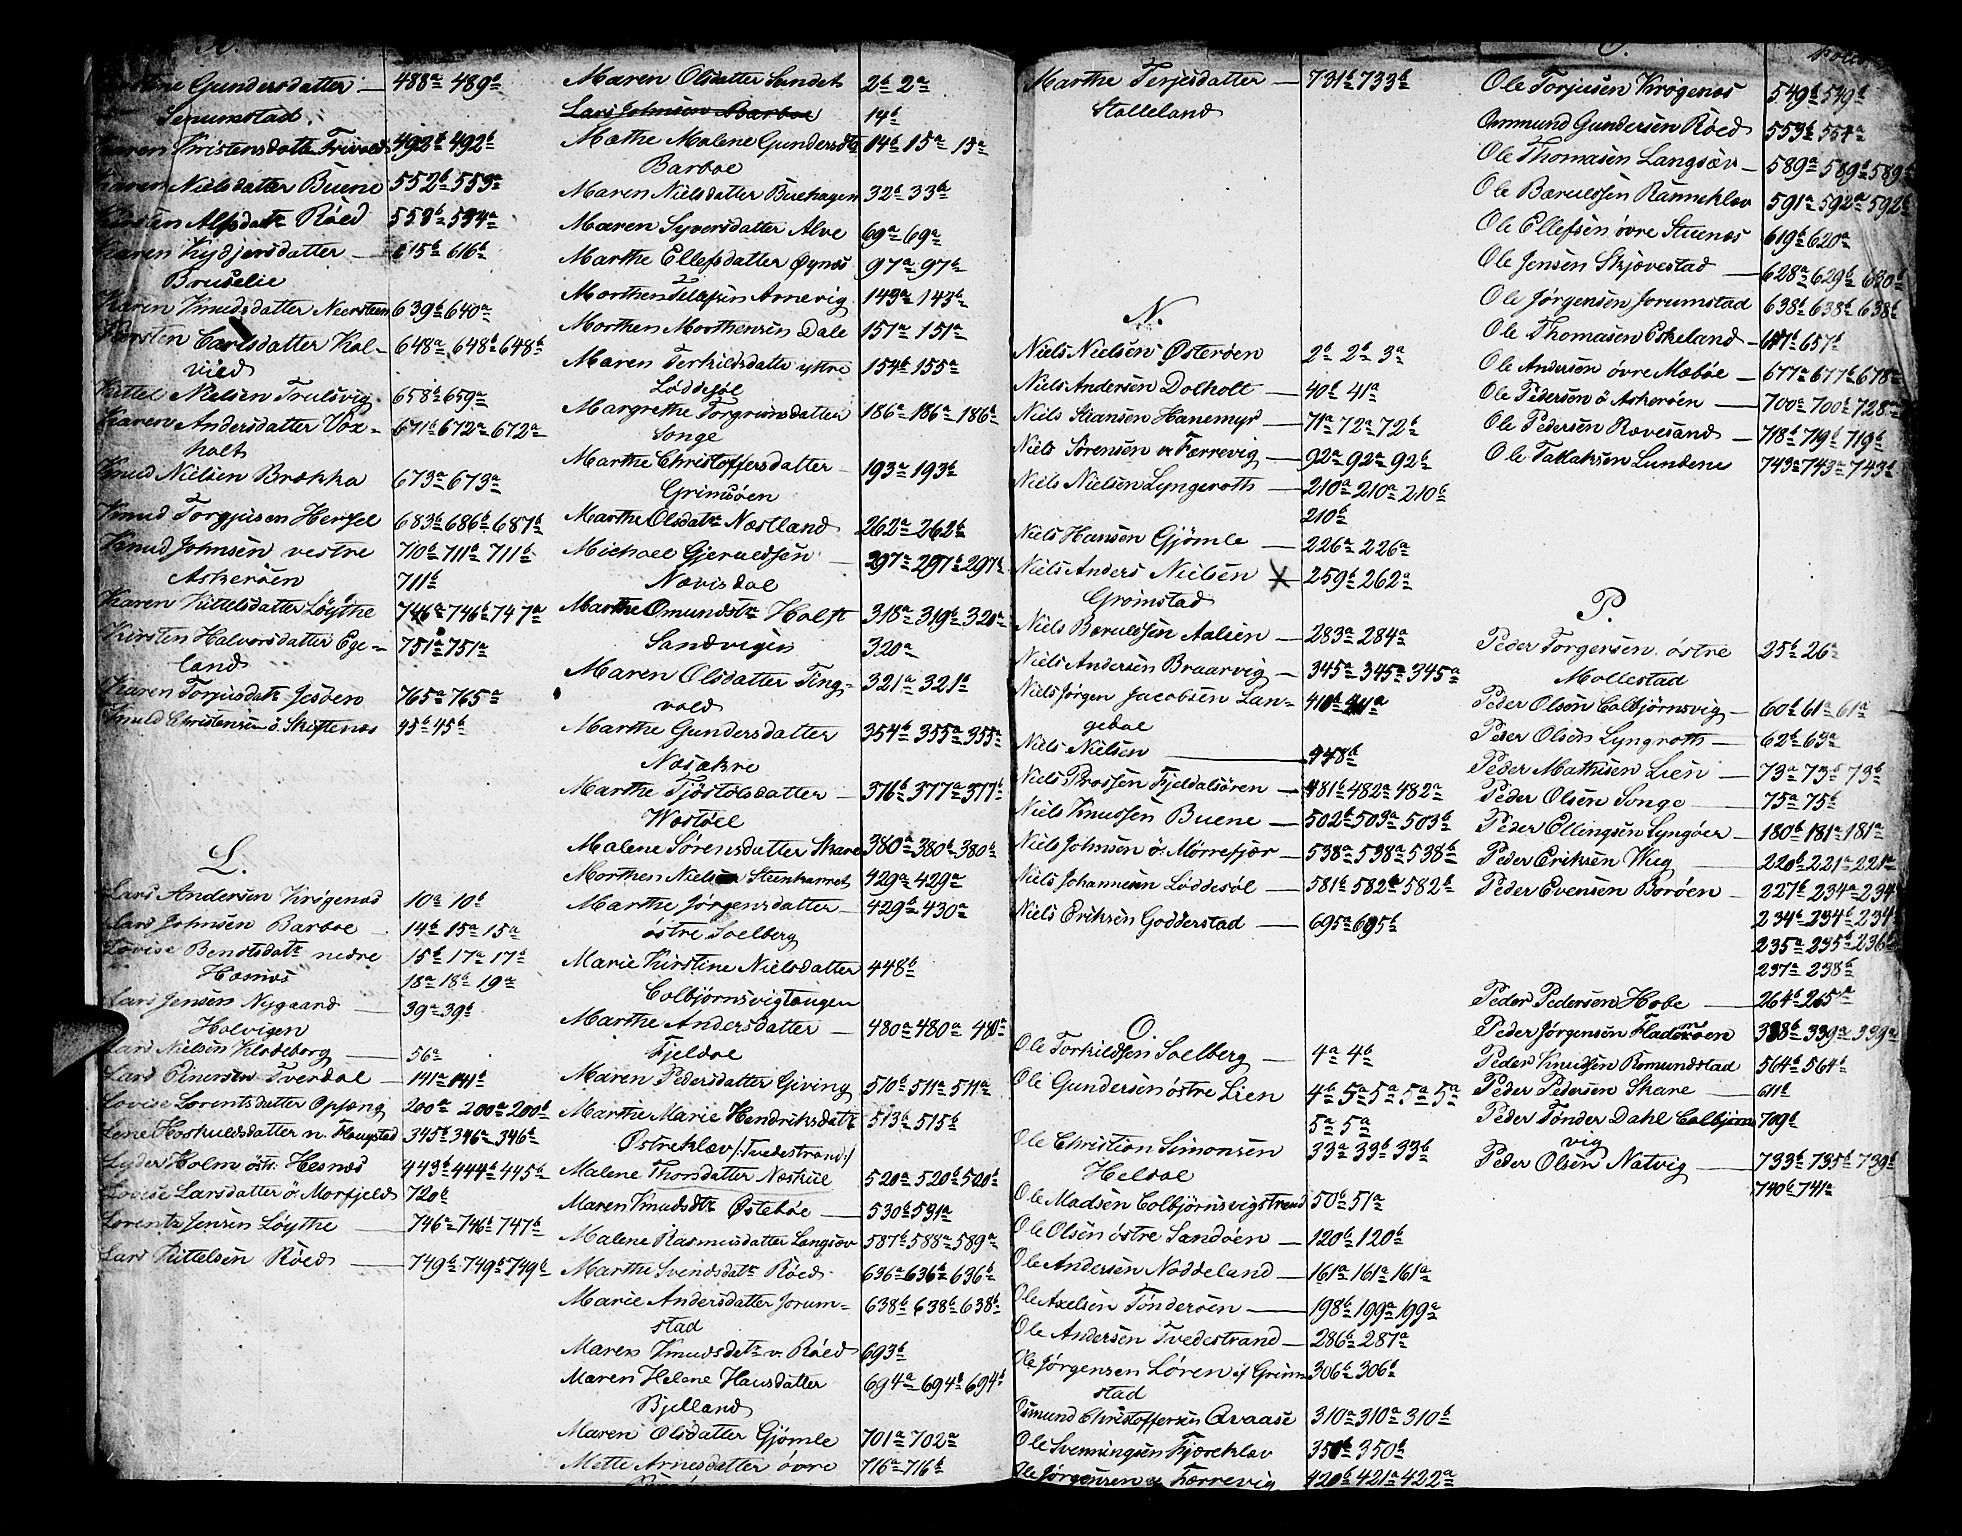 K.
Gundersdatter — 488a 489b
Senumstad.
Karen Kristensdatr Frivold 492b 492b
Karen Nielsdatter Buene 552b 553a
Kirsten Alfsdatr Röed 553b 554a
Karen Kydjersdatter — 615b 616b
Bruselie
Karen Knudsdatter Neersteen 639b 640a
Kirsten Carlsdatter Kal- 648a 648b 648b
vild
Kittel Nielsen Trulsvig 658b 659a
Karen Andersdatter Vox- 671b 672a 672a
holt
Knud Nielsen Brække 673a 673a
Knud Torgjusen Hensel 683b 686b 687b
Knud Johnsen vestre 710b 711a 711b
Askeröen 711b
Karen Kittelsdatter Löythe 746a 746b 747a
Kirsten Halvorsdatter Ege- 751a 751a
land
Karen Torjusdatr Josben 765a 765a
Knuld Christensen ö. Skiftenæs 45b 45b
L.
Lars Andersen Krögenæs 10a 10b
Lars Johnsen Barboe 14b 15a 15a
Lovise Bendtsdatr nedre 15b 17a 17b
Hæsnæs 18a 18b 19a
Lars Jensen Nygaard — 39a 39b
Holvigen
Lars Nielsen Klodeborg — 56a
Lars Einersen Tverdal — 141a 141b
Lovise Lorentsdatter Opsæng 200a 200a 200b
Lene Hoskuldsdatter n. Haugstad 345b 346a 346b
Lyder Holm östr. Hesnæs 443b 444b 445b
Lovise Larsdatter ö. Morfjeld 720b
Lorentz Jensen Löythe — 746a 746b 747b
Lars Kittelsen Röed — 749b 749b 749b
Maren Olsdatter Sundet 2b 2a
Lars Johnsen Barboe 14b
Mathe Malene Gundersdtr 14b 15a 15a
Barboe
Maren Nielsdatter Buehagen 32b 33b
Maren Syversdatter Alve 69a 69a
Marthe Ellefsdatter Öynæs 97a 97b
Morthen Tellefsen Arnevig 143a 143b
Morthen Morthensen Dale 151a 151a
Maren Terkildsdattr yttre 154b 155a
Löddesöl
Margrethe Torgrimsdatter 186a 186a 186b
Songe
Marthe Christoffersdatter — 193a 193b
Grimsöen
Marthe Olsdatr Næstland 262a 262b
Michael Gjeruldsen — 297a 297b 297b
Nævisdal
Marthe Omundsdtr Holst 318a 319b 320a
Sandvigen 320a
Maren Olsdatter Ting- 321a 321b
vold
Marthe Gundersdatter 354b 355a 355a
Næsakre
Marthe Tjöstolsdatter — 376b 377a 377b
Westöel
Malene Sörensdatter Skare 380a 380b 380b
Morthen Nielsen Steenharret 429a 429a
Marthe Jörgensdatter — 429b 430a
östre Soelberg
Marie Kirstine Nielsdatter 448b
Colbjörnsvigtangen
Marthe Andersdatter — 480a 480a 480a
Fjeldal
Maren Pedersdatter Giving 510b 511a 511a
Marthe Marie Hendriksdatr 513b 515b
Östreklev /:Tvedestrand:/
Malene Thorsdatter Næskiil 520a 520b 520b
Maren Knudsdtr Österböe — 530b 531a
Malene Rasmusdatter Langsæv 587b 588a 589a
Marthe Svendsdatr Röed. 636a 636b 636b
Marie Andersdatter Jorum- 638b 638b 638b
stad
Maren Knudsdatr v. Röed 693b
Maren Helene Hansdatter 694a 694b 694b
Bjelland
Maren Olsdatter Gjömle 701a 702a
Mette Arnesdatter övre 716a 716b
Marthe Terjesdatter — 731b 733b
Stalleland
N.
Niels Nielsen Österöen 2b 2b 3a
Niels Andersen Dolholt — 40b 41a
Niels Stiansen Hanemyr — 71a 72a 72b
Niels Sörensen v. Færrevig — 92a 92a 92b
Niels Nielsen Lyngeroth — 210a 210a 210b
210b
Niels Hansen Gjömle — 226a 226a
Niels Anders Nielsen X 259b 262a
Grömstad
Niels Bæruldsen Aalsen — 283a 284a
Niels Andersen Braarvig — 345a 345a 345a
Niels Jörgen Jacobsen Lan- 410b 411a
gedal
Niels Nielsen — 448b
Niels Prossen Fjeldalsören — 481b 482a 482a
Niels Knudsen Buene — 502b 503a 503b
Niels Johnsen ö. Mörrefjær — 538a 538a 538b
Niels Johannesen Löddesöl — 581b 582b 582b
Niels Eriksen Godderstad — 695a 695b
O.
Ole Torkildsen Soelberg — 4a 4b
Ole Gundersen östre Lien 4b 5a 5a 5a 5a
5a 5a
Ole Christian Simonsen 33a 33b 33b
Heldal
Ole Madsen Colbjörnsvigstrand 50b 51a
Ole Olsen östre Sandöen — 120b 120b
Ole Andersen Noddeland — 161a 161a 161a
Ole Axelsen Tönderöen — 198b 199a 199a
Ole Andersen Tvedestrand — 286b 287a
Ole Jörgensen Lören af Grim- 306b 306b
stad
Osmund Christoffersen Qvaase 310a 310a 310b
Ole Svenningsen Fjæreklev 350b 350b
Ole Jörgensen v. Færrevig 420b 421a 422a
O.
Ole Torjusen Krögenæs 549b 549b
Ommund Gundersen Röed 553b 554a
Ole Thomasen Langsæv — 589a 589b 589b
Ole Bæruldsen Ranneklev 591a 592a 592b
Ole Ellefsen övre Stuenæs 619b 620a
Ole Jensen Skjövestad — 628a 629b 630b
Ole Jörgensen Jorumstad 638b 638b 638b
Ole Thomasen Eskeland — 657b 657b
Ole Andersen övre Mæböe — 677a 677b 678a
Ole Pedersen ö Askeröen — 700a 700b 728a
Ole Pedersen Rævesand — 718b 719b 719b
Ole Tallaksen Lundene 743a 743a 743b
P.
Peder Torgersen östre 25b 26a
Mollestad
Peder Olsen Colbjörnsvig — 60b 61a 61a
Peder Olsen Lyngroth — 62b 63a
Peder Mathisen Lien — 73a 73b 73b
Peder Olsen Songe — 75a 75b
Peder Ellingsen Lyngöer — 180b 181a 181a
Peder Eriksen Wiig — 220b 221a 221a
Peder Evensen Boröen — 227b 234a 234
234b 234b 234b
235a 235b 236b
237a 238b
Peder Pedersen Hobe — 264b 265a
Peder Jörgensen Fladenmoen 338b 339a 339a
Peder Knudsen Romundstad 564b 564b
Peder Pedersen Skare — 611b
Peder Tönder Dahl Colbjörns 709b
vig
Peder Olsen Natvig — 733b 735b 739b
740b 741a